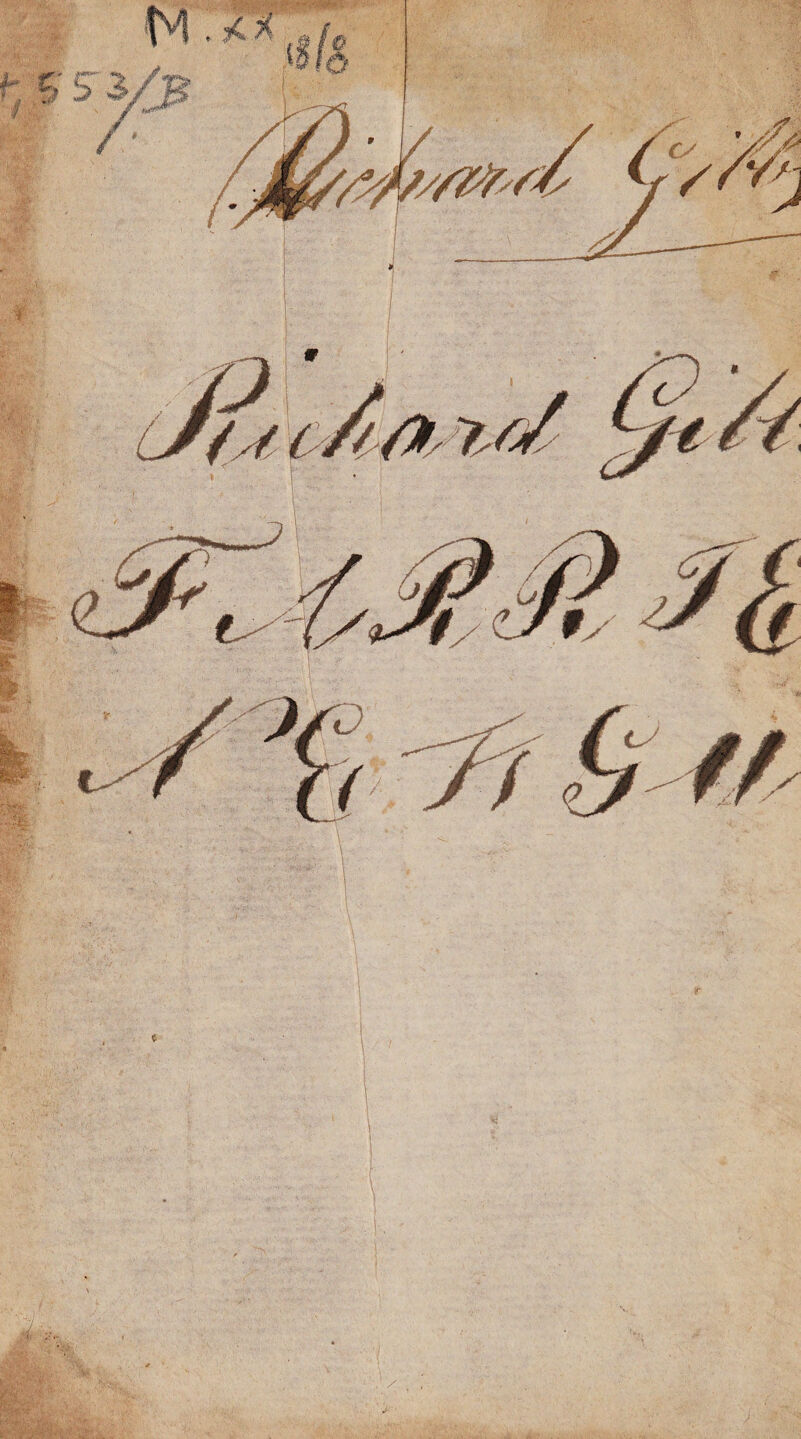 M.xx 18/8
+, 553/B
Richard Gibbs
Richard Gibbs
FARRIE
NEKGU